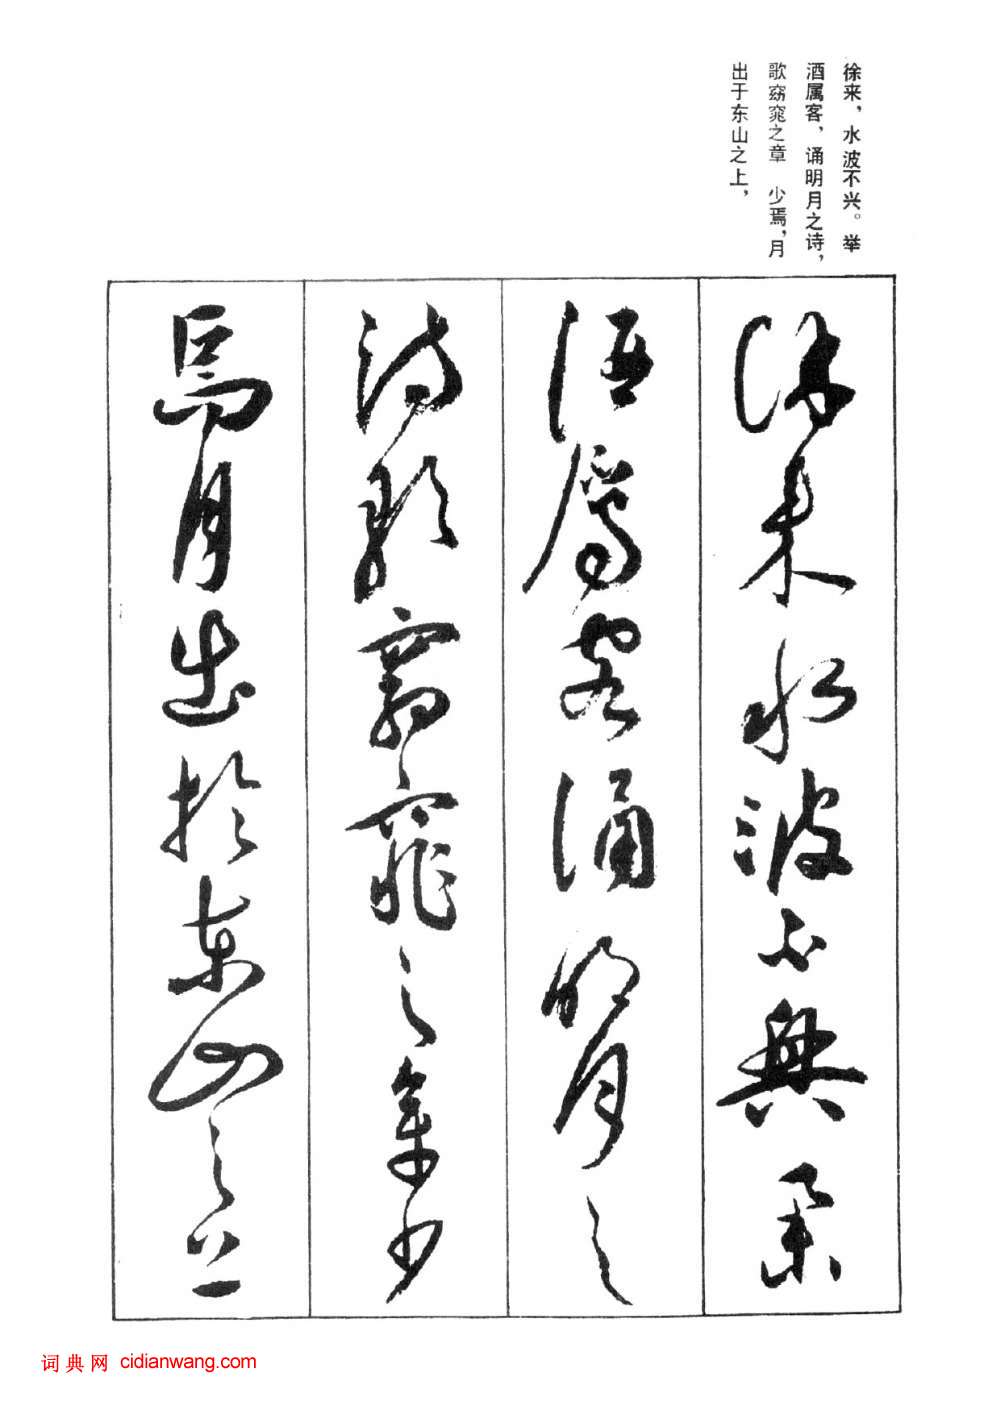 徐来，水波不兴。举
酒属客，诵明月之诗，
歌窈窕之章　少焉，月
出于东山之上，
徐来水波不兴举
酒属客诵明月之
诗歌窈窕之章少
焉月出於东山之上
词典网 cidianwang.com